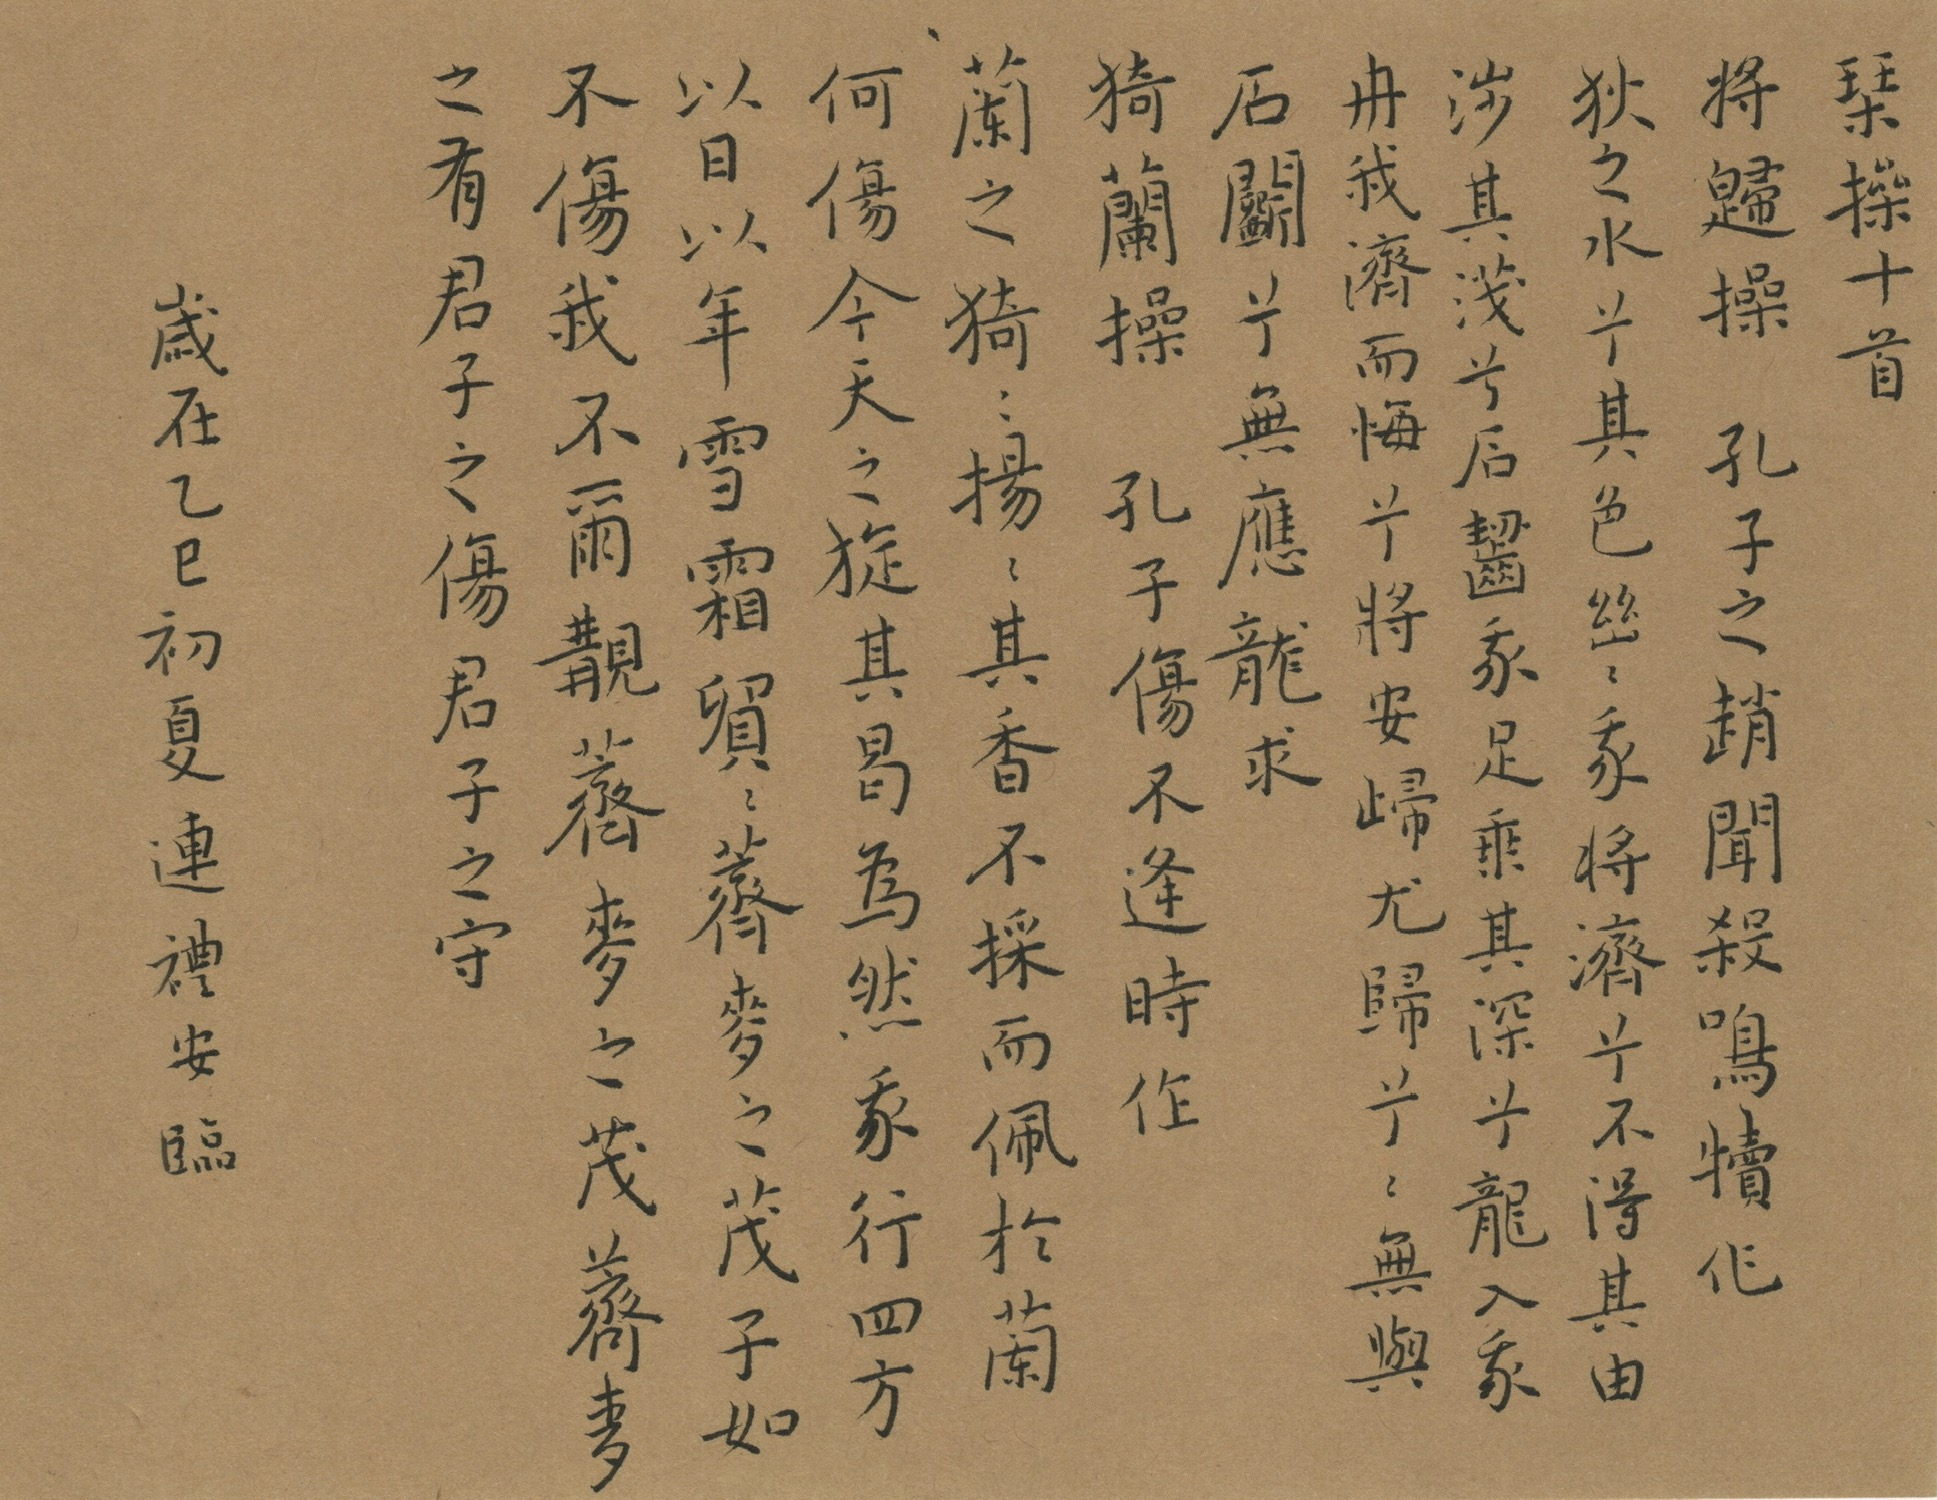 琹操十首
将歸操 孔子之趙聞殺鳴犢作
狄之水兮其色幽〻我将濟兮不得其由
涉其淺兮石齧我足乘其深兮龍入我
舟我濟而悔兮將安歸尤歸兮〻無與
石鬭兮無應龍求
猗蘭操 孔子傷不逢時作
蘭之猗〻揚〻其香不採而佩於蘭
何傷今天之旋其曷為然我行四方
以日以年雪霜貿〻薺麥之茂子如
不傷我不爾覯薺麥之茂薺麥
之有君子之傷君子之守
歲在乙巳初夏連禮安臨